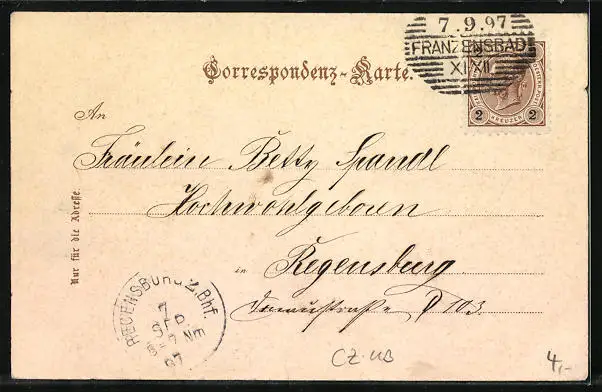 7.9.97
FRANZENSBAD
XI XII
Correspondenz-Karte.
2 KREUZER 2
An
Fräulein Betty Spandl
Hochwohlgeboren
Nur für die Adresse.
in Regensburg
D 103.
REGENSBURG Bhf.
7
SEP.
Nm
97
CZ-UB
4,-